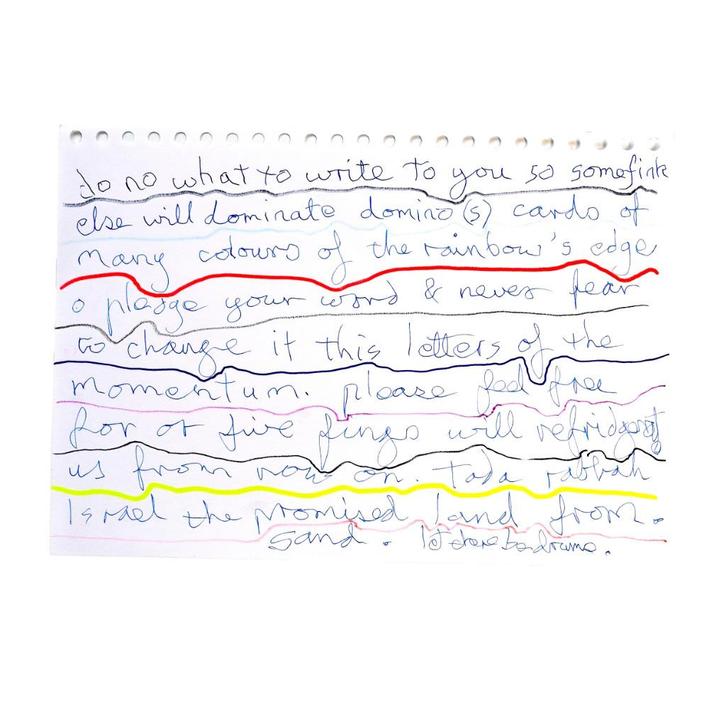 do no what to write to you so somefink
else will dominate domino(s) cards of
many colours of the rainbow's edge
o pledge your word & never fear
to change it this letters of the
momentum. please feel free
for or five fings will
us from now on. Tada rabbah
Israel the promised land from.
sand. let there be drums.